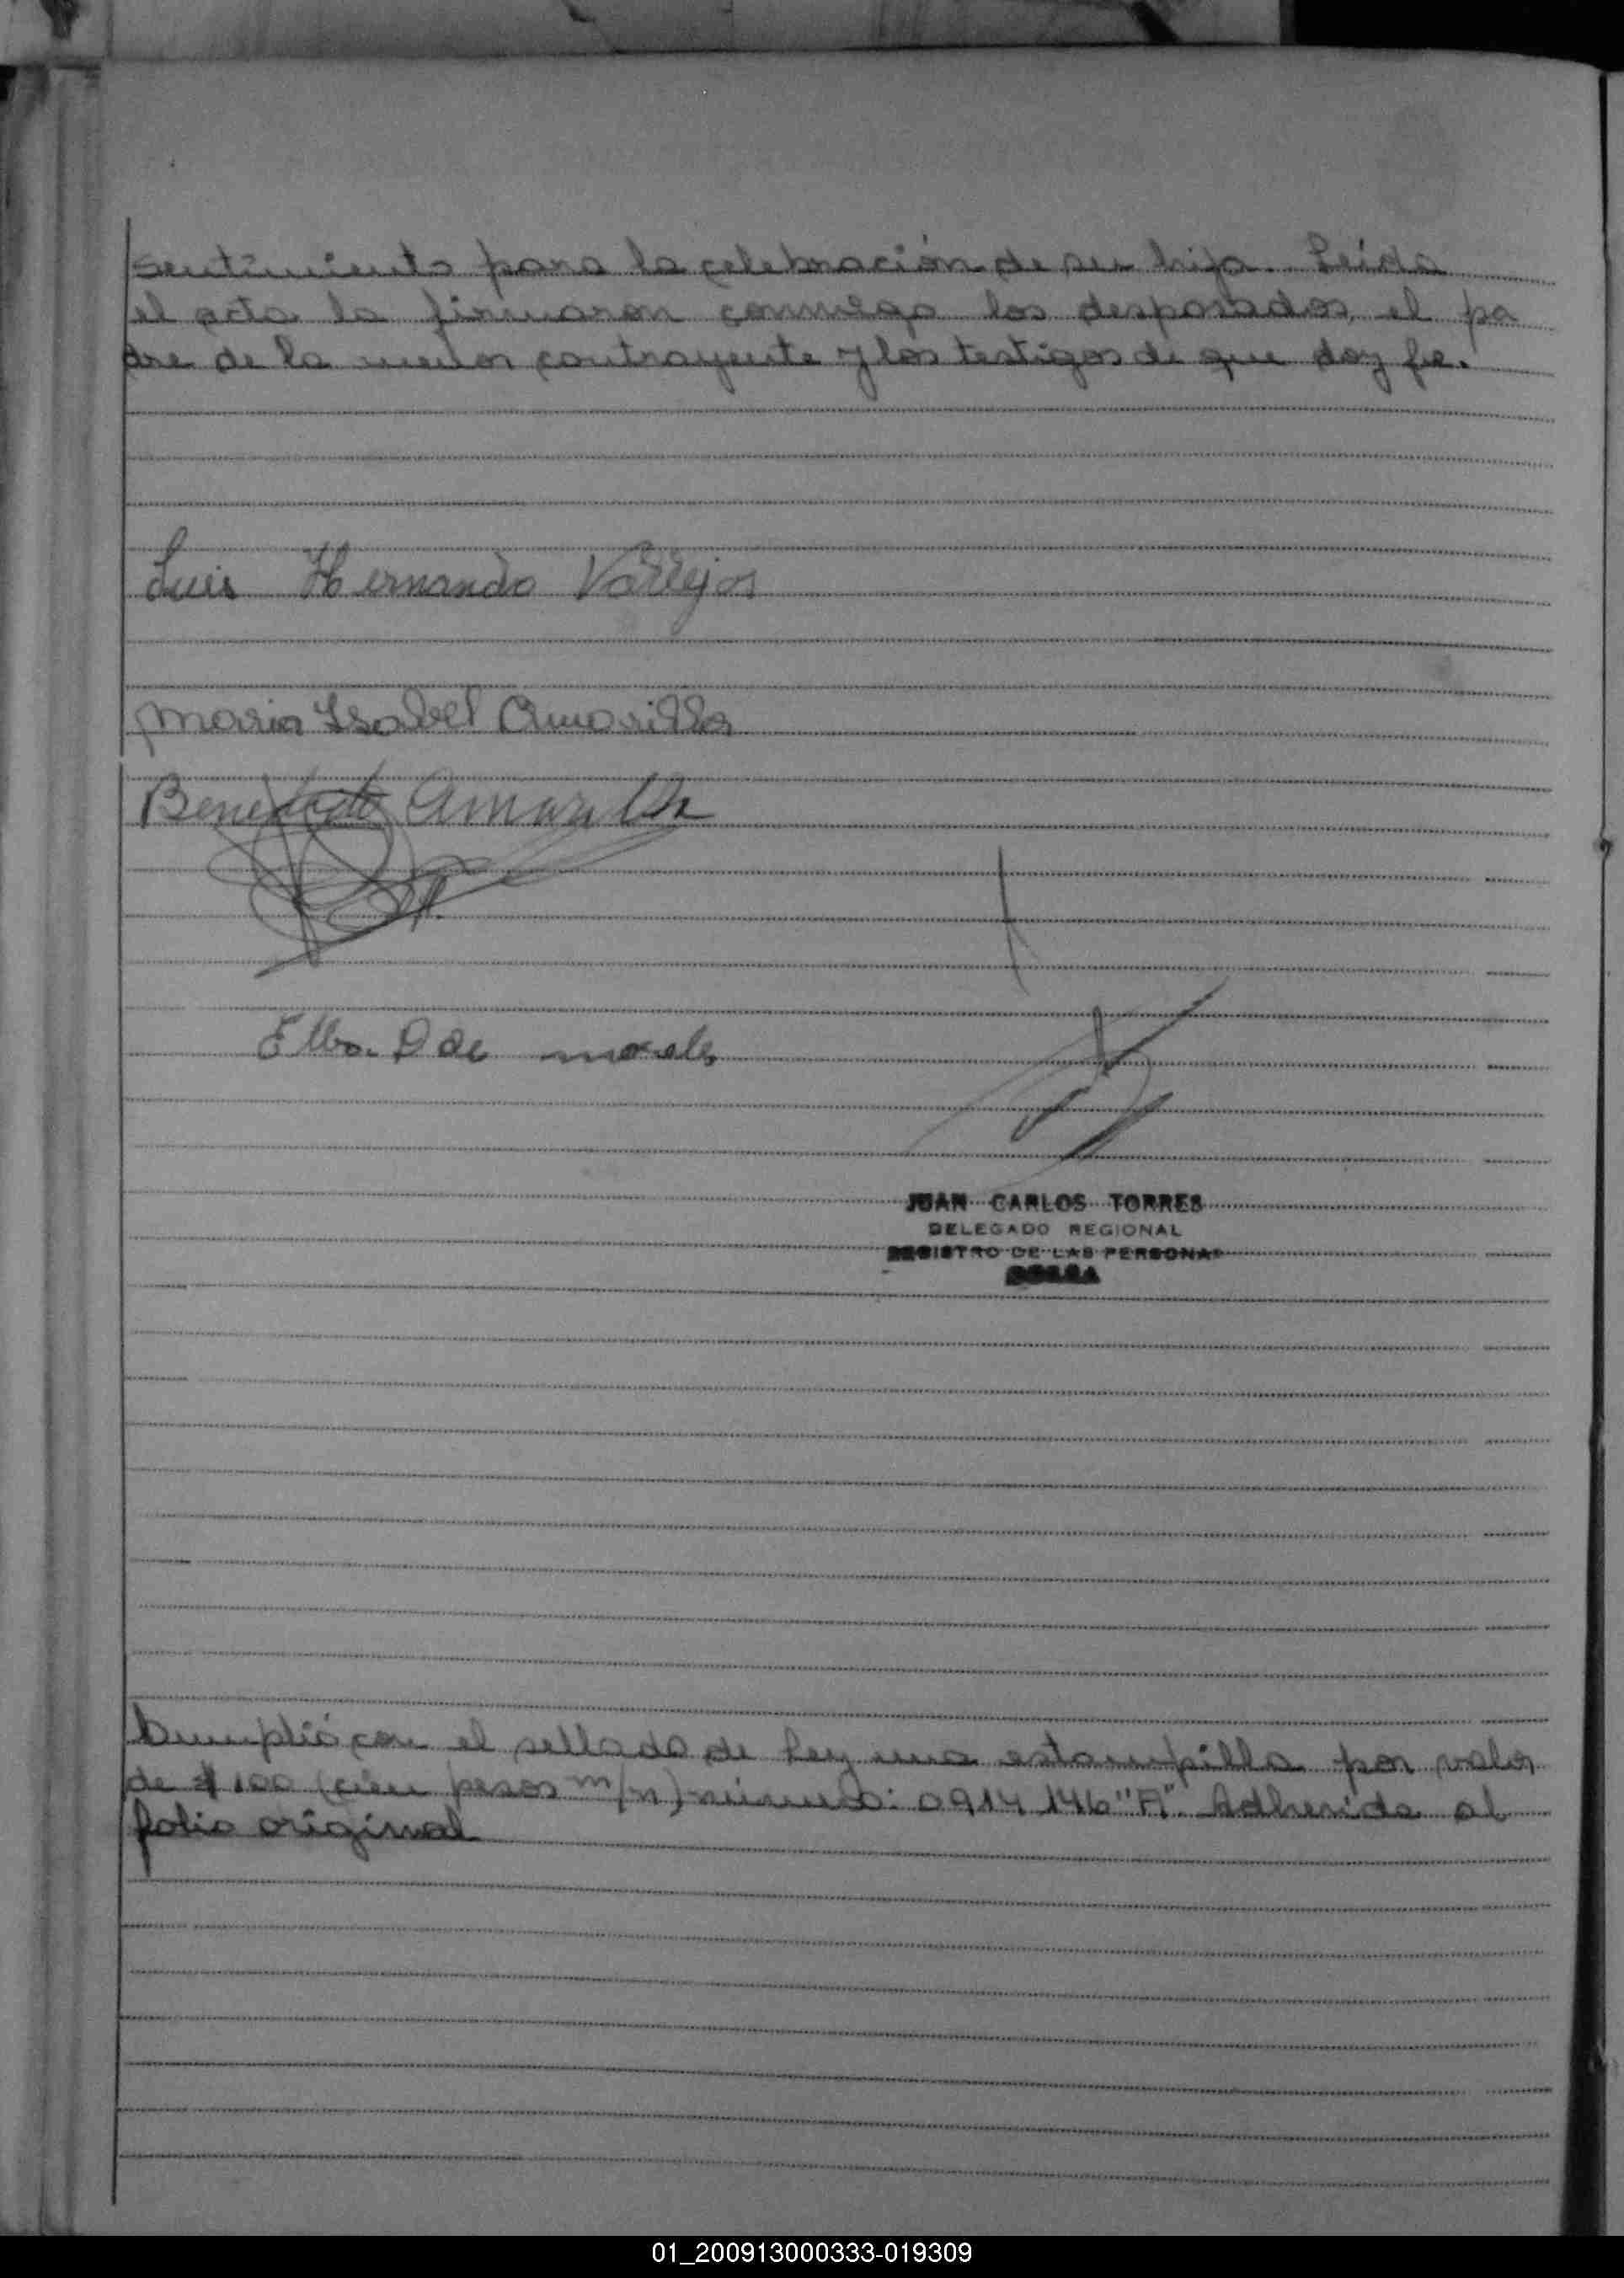 sentimiento para la celebración de su hija. Leida
el acta la firmaron conmigo los desposados, el pa
dre de la menor contrayente y los testigos de que doy fe.
Luis Hernando Vallejos
Maria Ysabel Amarilla
Benedicto Amarilla
Elba D de morales
JUAN CARLOS TORRES
DELEGADO REGIONAL
REGISTRO DE LAS PERSONAS
Cumplió con el sellado de Ley una estampilla por valor
de $ 100 (cien pesos m/n) número: 0914146 "A". Adherida al
folio original
01_200913000333-019309